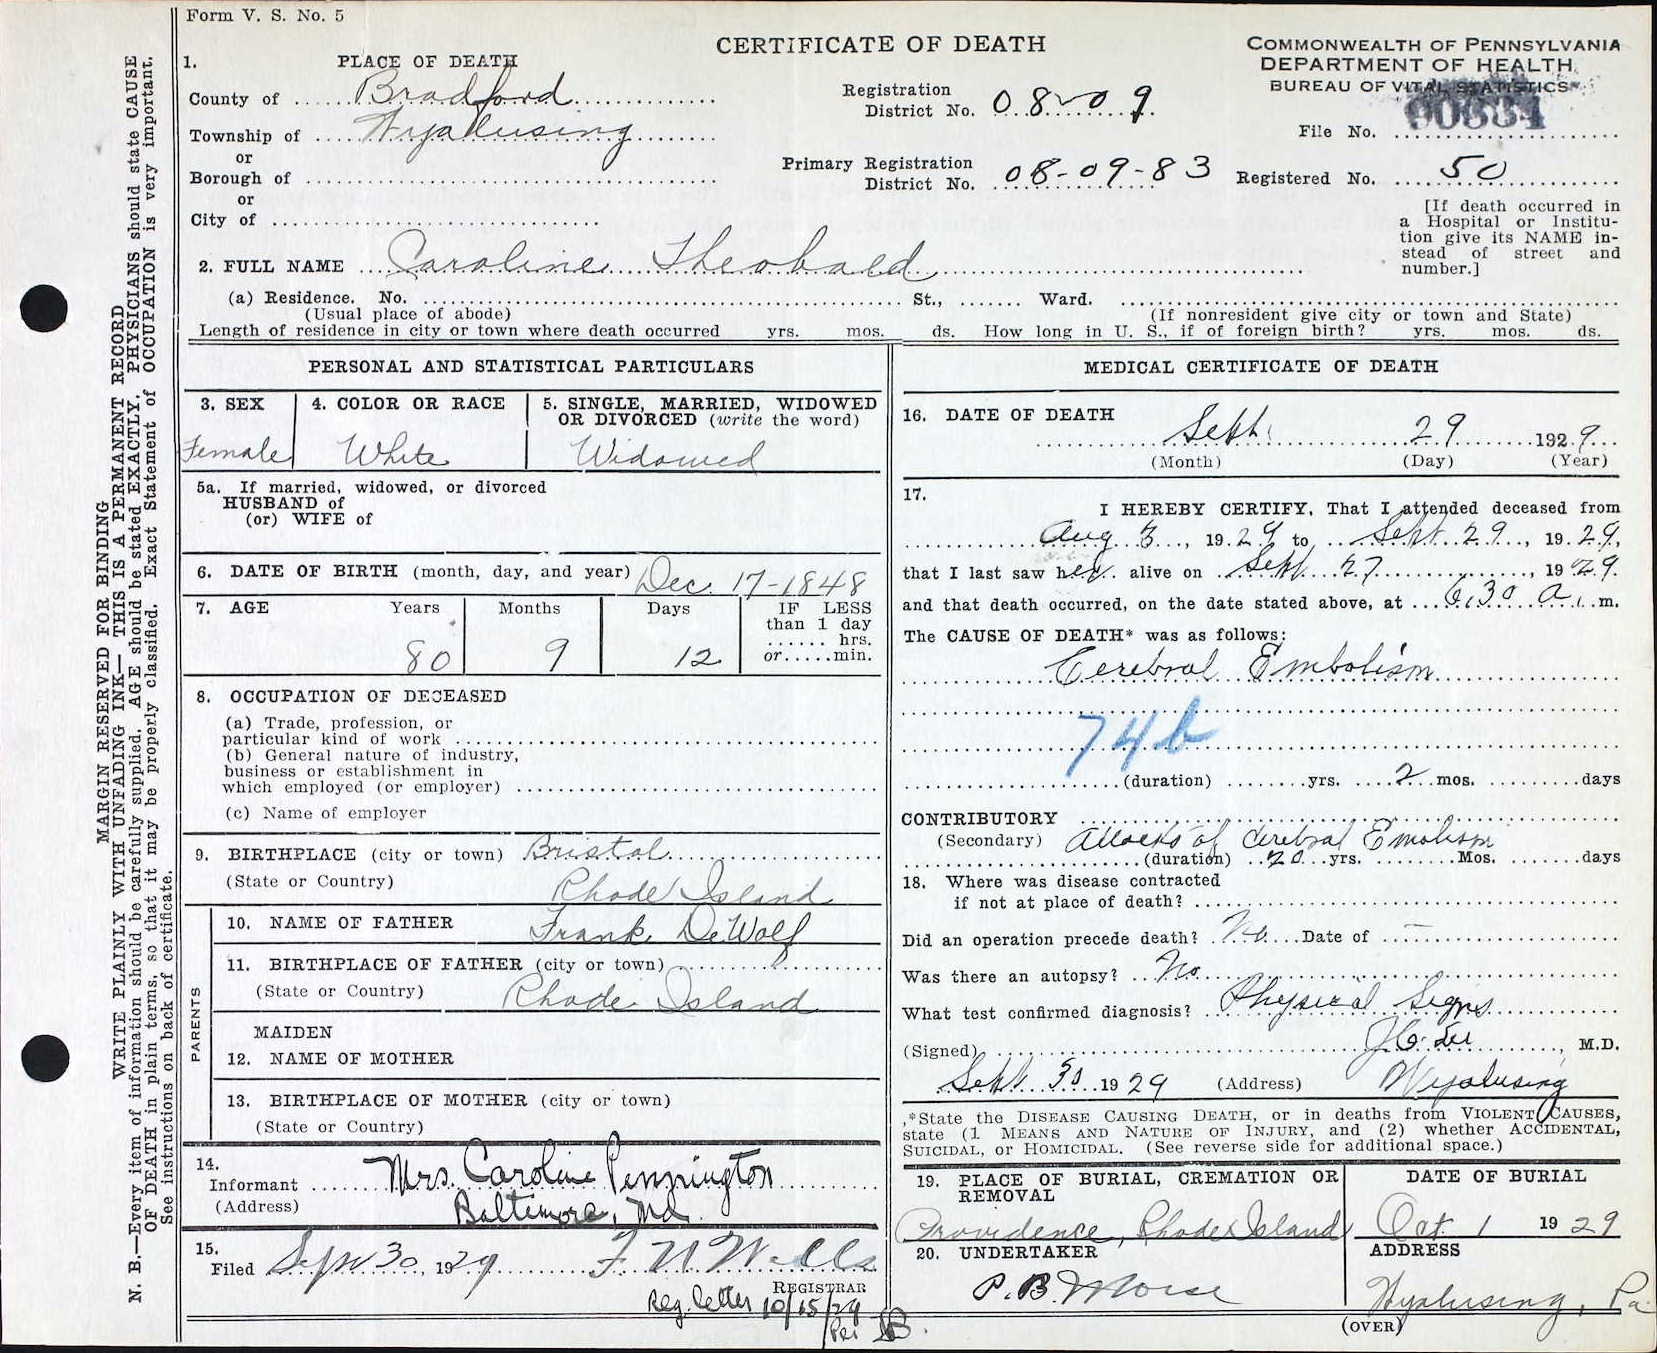 Form V. S. No. 5
CERTIFICATE OF DEATH
COMMONWEALTH OF PENNSYLVANIA
DEPARTMENT OF HEALTH
BUREAU OF VITAL STATISTICS
1. PLACE OF DEATH
County of Bradford
Township of Wyalusing
or
Borough of
or
City of
Registration District No. 08-09
Primary Registration District No. 08-09-83
File No. 90634
Registered No. 50
[If death occurred in
a Hospital or Institu-
tion give its NAME in-
stead of street and
number.]
2. FULL NAME Caroline Theobald
(a) Residence. No. St., Ward.
(Usual place of abode) (If nonresident give city or town and State)
Length of residence in city or town where death occurred yrs. mos. ds. How long in U. S., if of foreign birth? yrs. mos. ds.
PERSONAL AND STATISTICAL PARTICULARS
3. SEX
Female
4. COLOR OR RACE
White
5. SINGLE, MARRIED, WIDOWED
OR DIVORCED (write the word)
Widowed
5a. If married, widowed, or divorced
HUSBAND of
(or) WIFE of
6. DATE OF BIRTH (month, day, and year) Dec. 17-1848
7. AGE Years Months Days IF LESS
than 1 day
hrs.
or min.
80 9 12
8. OCCUPATION OF DECEASED
(a) Trade, profession, or
particular kind of work
(b) General nature of industry,
business or establishment in
which employed (or employer)
(c) Name of employer
9. BIRTHPLACE (city or town) Bristol
(State or Country) Rhode Island
PARENTS
10. NAME OF FATHER Frank DeWolf
11. BIRTHPLACE OF FATHER (city or town)
(State or Country) Rhode Island
MAIDEN
12. NAME OF MOTHER
13. BIRTHPLACE OF MOTHER (city or town)
(State or Country)
14.
Informant Mrs. Caroline Pennington
(Address) Baltimore, Md.
15.
Filed Sept 30, 1929 F N Wells
REGISTRAR
Reg. letter 10/15/29
Per
MEDICAL CERTIFICATE OF DEATH
16. DATE OF DEATH
Sept. 29 1929
(Month) (Day) (Year)
17.
I HEREBY CERTIFY, That I attended deceased from
Aug 3, 1929 to Sept 29, 1929,
that I last saw her alive on Sept 27, 1929
and that death occurred, on the date stated above, at 6:30 a. m.
The CAUSE OF DEATH* was as follows:
Cerebral Embolism
74b
(duration) yrs. 2 mos. days
CONTRIBUTORY
(Secondary) Attacks of Cerebral Emolism
(duration) 20 yrs. Mos. days
18. Where was disease contracted
if not at place of death?
Did an operation precede death? No Date of —
Was there an autopsy? No
What test confirmed diagnosis? Physical Signs
(Signed) M.D.
Sept 30 1929 (Address) Wyalusing
*State the DISEASE CAUSING DEATH, or in deaths from VIOLENT CAUSES,
state (1 MEANS AND NATURE OF INJURY, and (2) whether ACCIDENTAL,
SUICIDAL, or HOMICIDAL. (See reverse side for additional space.)
19. PLACE OF BURIAL, CREMATION OR
REMOVAL
Providence, Rhode Island
DATE OF BURIAL
Oct 1 1929
20. UNDERTAKER
P. B. Morse
ADDRESS
Wyalusing, Pa
(OVER)
MARGIN RESERVED FOR BINDING
WRITE PLAINLY WITH UNFADING INK— THIS IS A PERMANENT RECORD
N. B.—Every item of information should be carefully supplied. AGE should be stated EXACTLY. PHYSICIANS should state CAUSE
OF DEATH in plain terms, so that it may be properly classified. Exact Statement of OCCUPATION is very important.
See instructions on back of certificate.